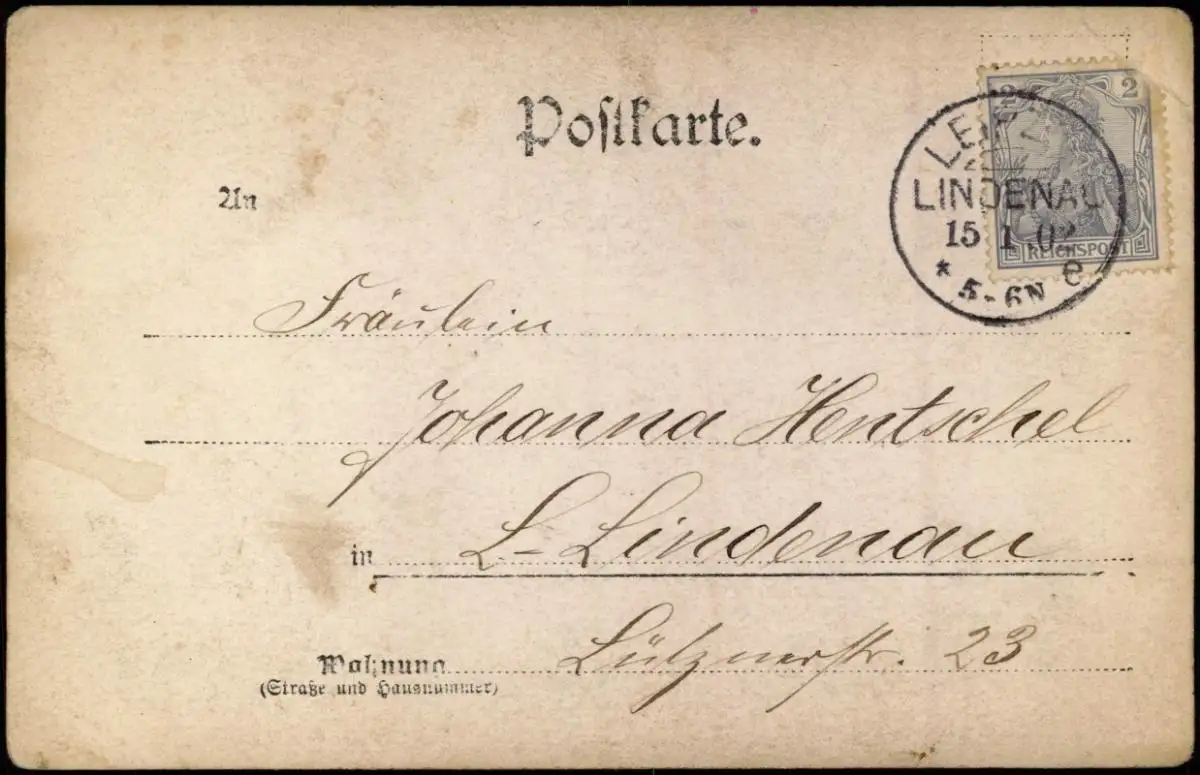 Postkarte.
2 2
LEIPZIG
LINDENAU
15 1 02
* 5-6N e
REICHSPOST
An
Fräulein
Johanna Hentschel
in L-Lindenau
Wohnung Lütznerstr. 23
(Straße und Hausnummer)